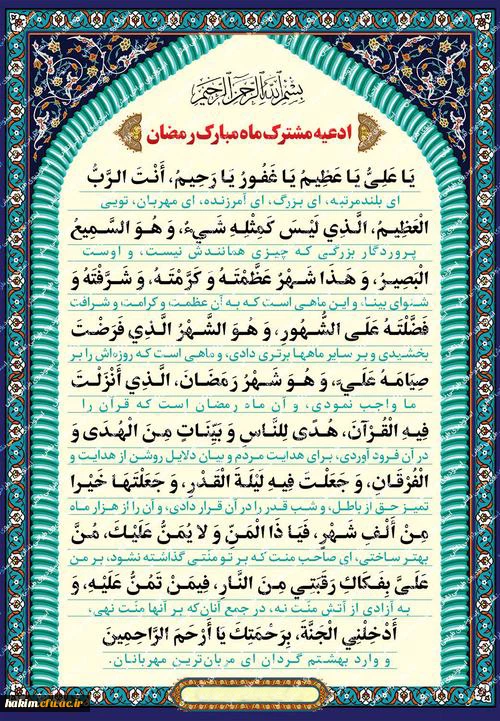 بِسْمِ اللَّهِ الرَّحْمَنِ الرَّحِيمِ
ادعیه مشترک ماه مبارک رمضان
يَا عَلِيُّ يَا عَظِيمُ يَا غَفُورُ يَا رَحِيمُ، أَنْتَ الرَّبُّ
ای بلندمرتبه، ای بزرگ، ای آمرزنده، ای مهربان، تویی
الْعَظِيمُ، الَّذِي لَيْسَ كَمِثْلِهِ شَيْءٌ، وَ هُوَ السَّمِيعُ
پروردگار بزرگی که چیزی همانندش نیست، و اوست
الْبَصِيرُ، وَ هَذَا شَهْرٌ عَظَّمْتَهُ وَ كَرَّمْتَهُ، وَ شَرَّفْتَهُ وَ
شنوای بینا، و این ماهی است که به آن عظمت و کرامت و شرافت
فَضَّلْتَهُ عَلَى الشُّهُورِ، وَ هُوَ الشَّهْرُ الَّذِي فَرَضْتَ
بخشیدی و بر سایر ماهها برتری دادی، و ماهی است که روزه‌اش را بر
صِيَامَهُ عَلَيَّ، وَ هُوَ شَهْرُ رَمَضَانَ، الَّذِي أَنْزَلْتَ
ما واجب نمودی، و آن ماه رمضان است که قرآن را
فِيهِ الْقُرْآنَ، هُدًى لِلنَّاسِ وَ بَيِّنَاتٍ مِنَ الْهُدَى وَ
در آن فرود آوردی، برای هدایت مردم و بیان دلایل روشن از هدایت و
الْفُرْقَانِ، وَ جَعَلْتَ فِيهِ لَيْلَةَ الْقَدْرِ، وَ جَعَلْتَهَا خَيْرا
تمیز حق از باطل، و شب قدر را در آن قرار دادی، و آن را از هزار ماه
مِنْ أَلْفِ شَهْرٍ، فَيَا ذَا الْمَنِّ وَ لا يُمَنُّ عَلَيْكَ، مُنَّ
بهتر ساختی، ای صاحب منت که بر تو منّتی گذاشته نشود، بر من
عَلَيَّ بِفَكَاكِ رَقَبَتِي مِنَ النَّارِ، فِيمَنْ تَمُنُّ عَلَيْهِ، وَ
به آزادی از آتش منّت نه، در جمع آنان‌که بر آنها منّت نهی،
أَدْخِلْنِي الْجَنَّةَ، بِرَحْمَتِكَ يَا أَرْحَمَ الرَّاحِمِينَ
و وارد بهشتم گردان ای مهربان‌ترین مهربانان.
hakim.cfu.ac.ir